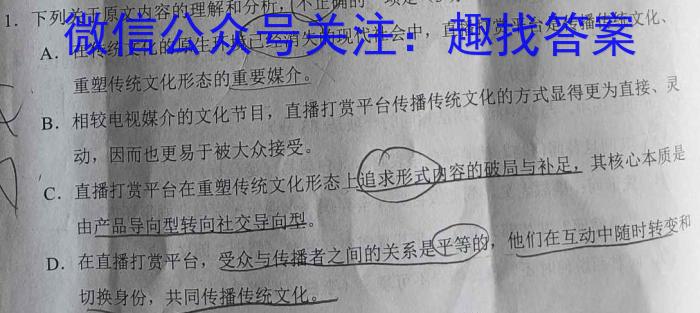 1. 下列关于原文内容的理解和分析，不正确的一项是
微信公众号关注：趣找答案
A. 在传统文化的原生环境已经消失的现代社会中，直播打赏平台是传播传统文化、
重塑传统文化形态的重要媒介。
B. 相较电视媒介的文化节目，直播打赏平台传播传统文化的方式显得更为直接、灵
动，因而也更易于被大众接受。
C. 直播打赏平台在重塑传统文化形态上追求形式内容的破局与补足，其核心本质是
由产品导向型转向社交导向型。
D. 在直播打赏平台，受众与传播者之间的关系是平等的，他们在互动中随时转变和
切换身份，共同传播传统文化。